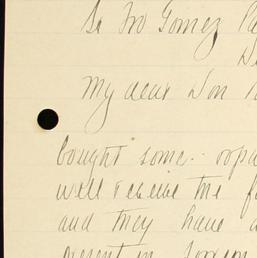 Sr Fro Gomez Pa
My dear Don
bought some
will receive the f
and they have a
present in